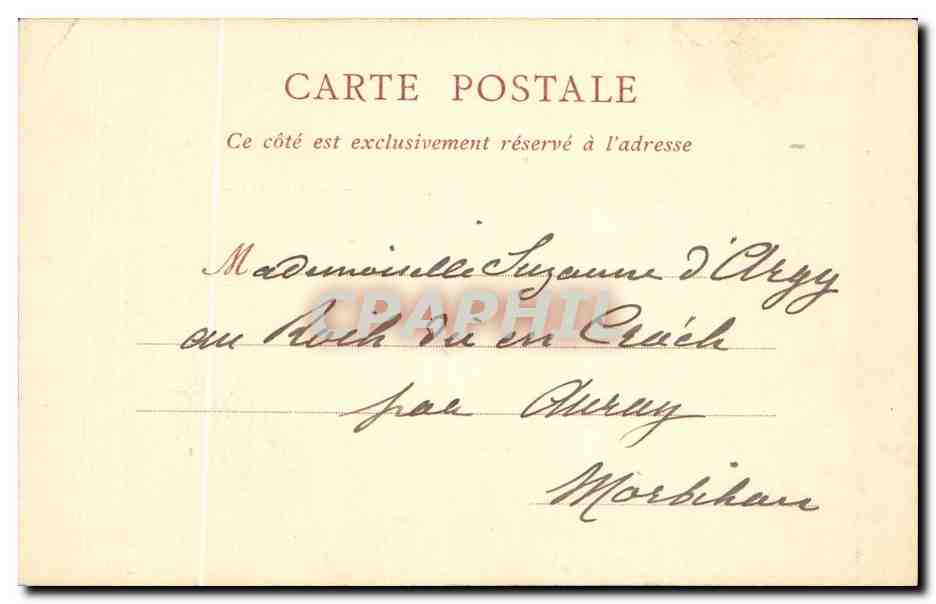 CARTE POSTALE
Ce côté est exclusivement réservé à l'adresse
Mademoiselle Suzanne d'Argy
CPARHIL
au Roch Du en Crach
par Auray
Morbihan